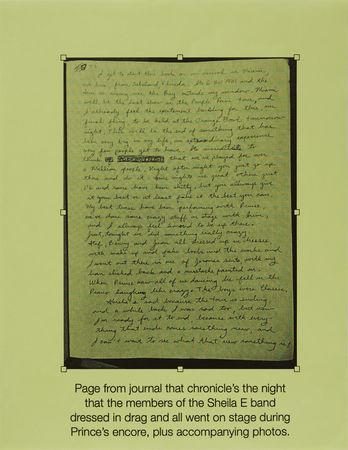 I get to start this book on our arrival in Miami,
we are from Lakeland Florida. It's 6 Oct 1985 and the
sun is shining over the Bay outside my window. Miami
will be the last show in the Purple Rain Tour, and
I already feel the excitement building for this, our
final fling to be held at the Orange Bowl tomorrow
night. This will be the end of something that has
been very big in my life, an extraordinary experience
very few people get to have. Its incredible to
think that we've played for over
a million people, Night after night you just go up
there and do it. Some nights are great others just
O'k and some have been shitty, but you always give
it your best or at least fake it the best you can.
My best times have been performing with Prince,
we've done some crazy stuff on stage with him,
and I always feel honored to be up there.
Just tonight we did something really crazy.
Stef, Benny and Juan all dressed up in dresses,
with make up and fake boobs and the works and
I went out there in one of Jeromes suits with my
hair slicked back and a mustache painted on.
When Prince saw all of us dancing he fell on the
Piano laughing like crazy. The boys were Classic.
Sheila's sad because the tour is ending
and a while back I was sad too, but now
I'm ready for it to end because with every-
thing that ends comes something new, and
I can't wait to see what that new something is!
Page from journal that chronicle's the night
that the members of the Sheila E band
dressed in drag and all went on stage during
Prince's encore, plus accompanying photos.